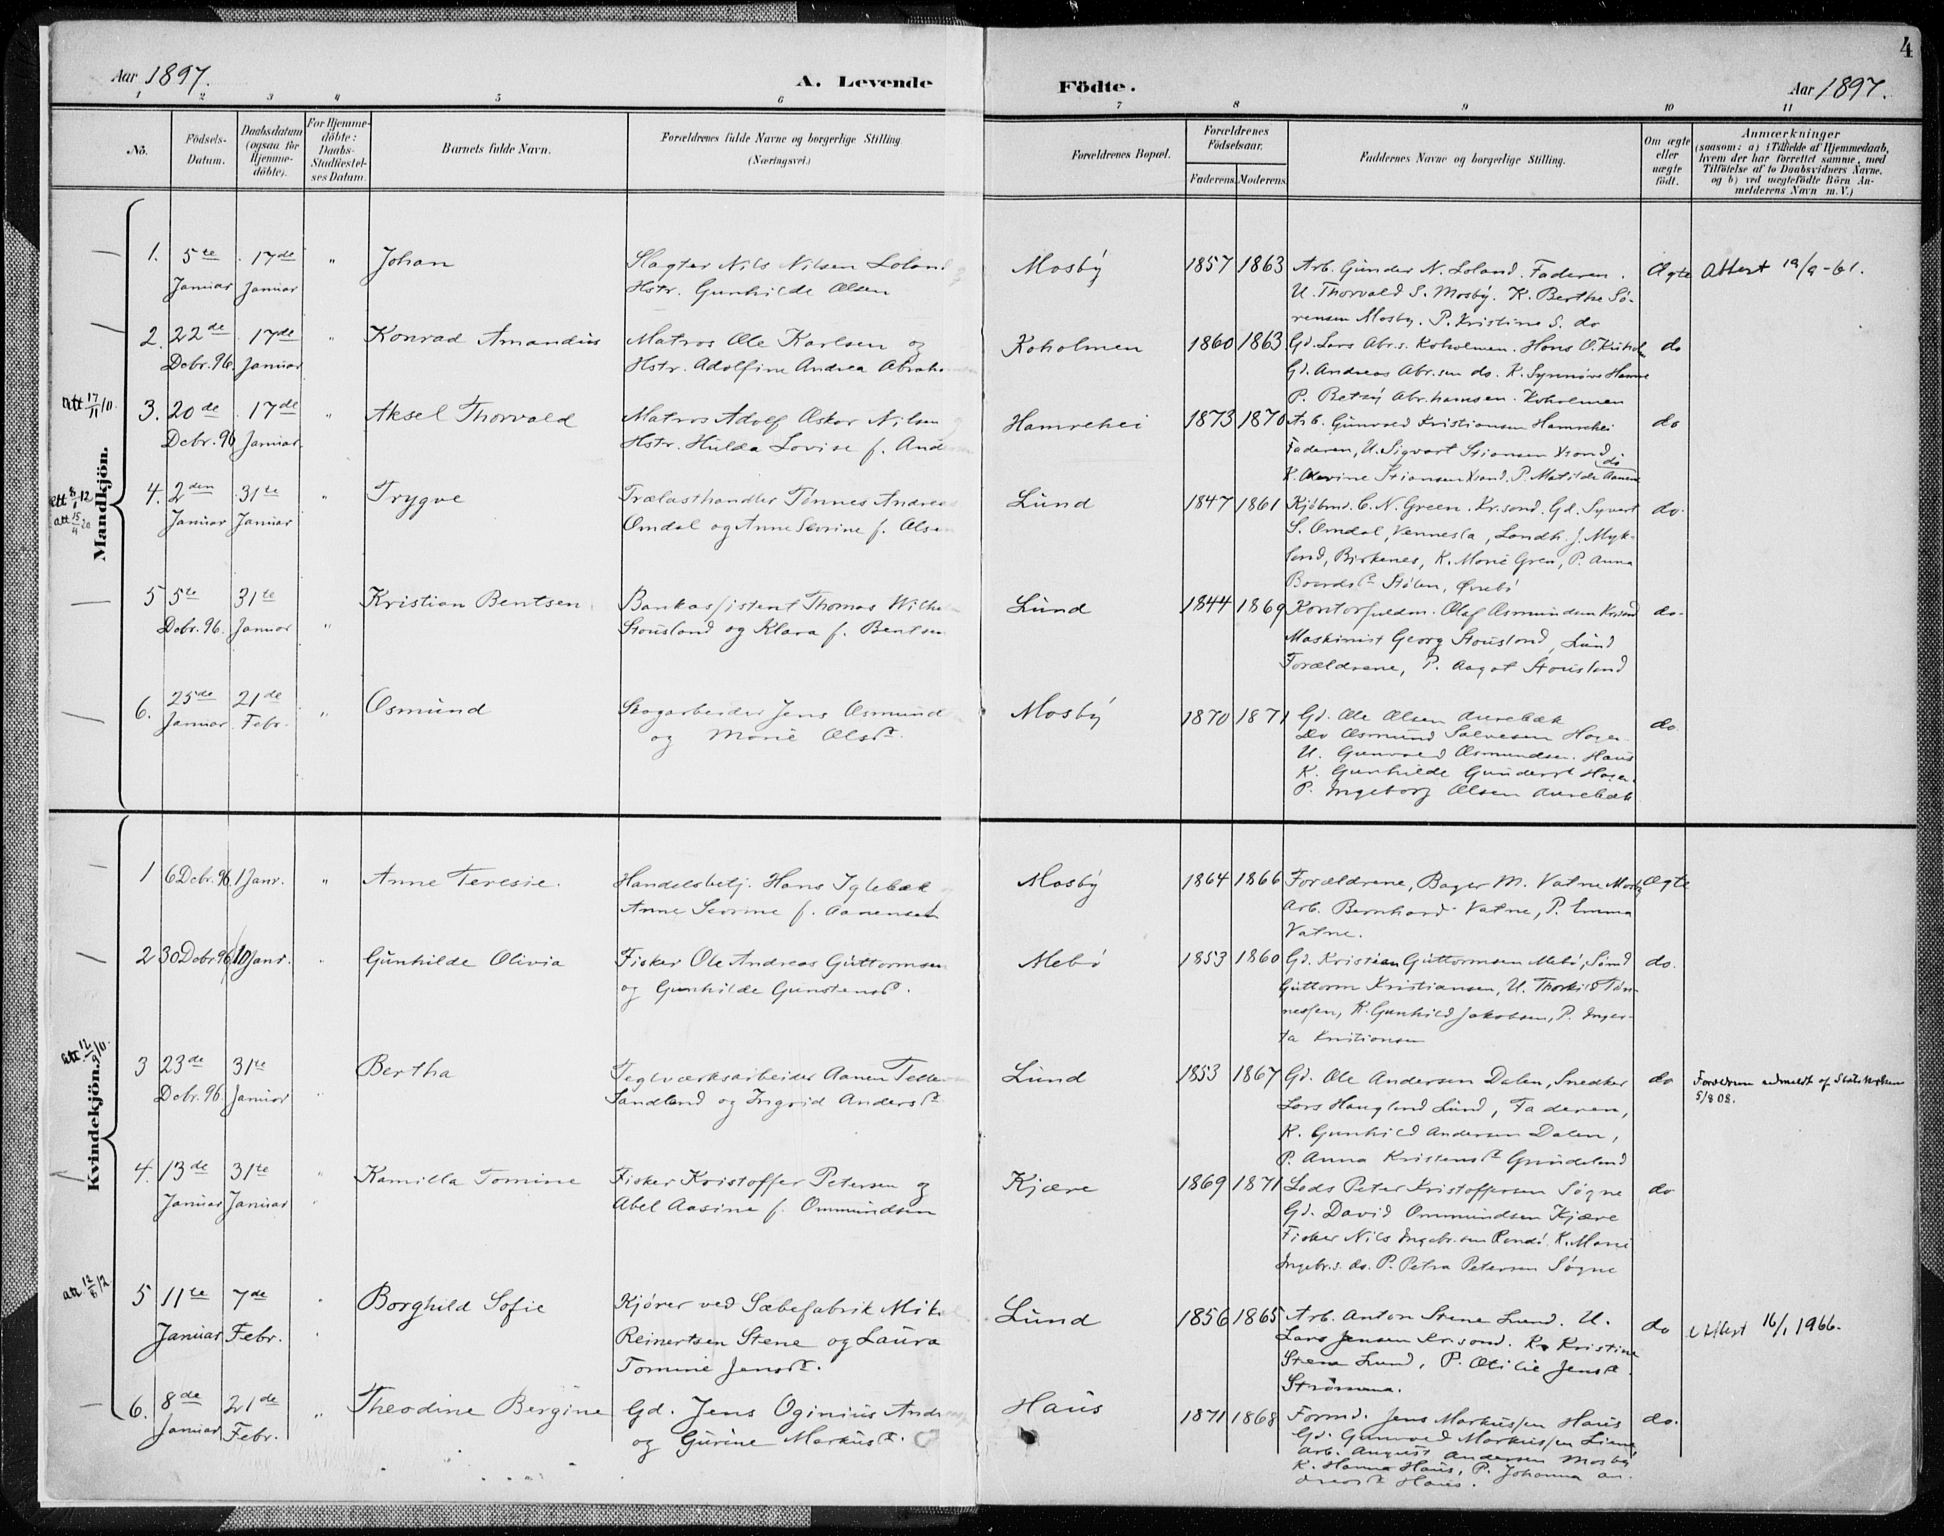 4
Aar 1897.
A. Levende Födte.
Aar 1897.
1 2 3 4 5 6 7 8 9 10 11
Nö.
Födsels-Datum.
Daabsdatum (ogsaa for Hjemme-döbte).
For Hjemme-döbte: Daabs-Stadfæstel-ses Datum.
Barnets fulde Navn.
Forældrenes fulde Navne og borgerlige Stilling (Næringsvei.)
Forældrenes Bopæl.
Forældrenes Födselsaar.
Faderens. Moderens.
Faddernes Navne og borgerlige Stilling.
Om ægte eller uægte födt.
Anmærkninger
(saasom: a) i Tilfælde af Hjemmedaab,
hvem der har forrettet samme, med
Tilföielse af to Daabsvidners Navne.
og b) ved uægtefödte Börn An-
melderens Navn m. V.)
Mandkjön.
1. 5te Januar 17de Januar " Johan
Slagter Nils Nilsen Loland
Hstr. Gunhilde Olsen
Mosby 1857 1863
Arb. Gunder N. Loland. Faderen.
U. Thorvald S. Mosby. K. Berthe Sö-
rensen Mosby. P. Kristine S. do
Ægte Attest 19/9-61.
2. 22de Debr. 96. 17de Januar " Konrad Amandus
Matros Ole Karlsen og
Hstr. Adolfine Andrea
Koholmen 1860 1863
Gd. Lars Abr.s. Koholmen. Hans O.
Gd. Andreas Abr.sen do. K. Synnöve Hamre
P. Betsy Abrahamsen. Koholmen
do
Att 17/11/11.
3. 20de Debr. 96 17de Januar " Aksel Thorvald
Matros Adolf Oskar Nilsen
Hstr. Hulda Lovise f.
Hamrehei 1873 1870
Arb. Gunvald Kristiansen Hamrehei
Faderen, U. Sigvart Stiansen Xsand
K. Olevine Stiansen Xsand. P. Matilde Aanens do
do
4. 2den Januar 31te Januar " Trygve
Trælasthandler Tönnes Andreas
Omdal og Anne Sevrine f. Olsen
Lund 1847 1861
Kjöbmd. C. N. Green. Kr.sand. Gd. Syvert
S. Omdal, Vennesla, Landh. J. Myk-
land, Birkenes, K. Marie Gren, P. Anna
Stölen, Övrebö
do.
5 5te Debr. 96. 31te Januar " Kristian Bentsen
Bankassistent Thomas
Stousland og Klara f. Bentsen
Lund 1844 1869
Kontorfuldm. Olaf Osmundsen Krsand
Maskinist Georg Stousland, Lund
Forældrene, P. Aagot Stousland
do.
6. 25de Januar 21de Febr. " Osmund
Skogarbeider Jens Osmund
og Marie Olsd.
Mosby 1870 1871
Gd. Ole Olsen Aurebæk
Do Osmund Salvesen Hagen
U. Gunvald Osmundsen. Haus
K. Gunhilde Gundersd Hagen.
P. Ingeborg Olsen Aurebæk
do
Kvindekjön.
1 6 Debr. 96 1 Janr. " Anne Teresie.
Handelsbetj. Hans Iglebæk
Anne Sevrine f. Aanensen
Mosby 1864 1866
Forældrene, Bager M. Vatne Mosby
Arb. Bernhard Vatne, P. Emma
Vatne.
Ægte
2 30 Debr 96 10 Janr. " Gunhilde Olivia
Fisker Ole Andreas Guttormsen
og Gunhilde Gunstensd.
Mebö 1853 1860
Gd. Kristian Guttormsen Mebö, Sömd
Guttorm Kristiansen, U. Thorkild Tön-
nessen, K. Gunhild Jakobsen, P. Inger-
ta Kristiansen
do.
3 23de Debr. 96. 31te Januar " Bertha
Teglværksarbeider Aanen
Sandland og Ingrid Andersd.
Lund 1853 1867
Gd. Ole Andersen Dalen, Snedker
Lars Haugland Lund, Faderen,
K. Gunhild Andersen Dalen,
P. Anna Kristensd Grundeland
do Forældrene udmeldt af Statskirken
5/8 08.
4. 13de Januar 31te Januar " Kamilla Tomine
Fisker Kristoffer Petersen og
Abel Aasine f. Ommundsen
Kjære 1869 1871
Lods Peter Kristoffersen Søgne
Gd. David Ommundsen Kjære
Fisker Nils Ingebr.sen Randö. K. Marie
Ingebr.s. do. P. Petra Petersen Søgne
do
5 11te Januar 7de Febr. " Borghild Sofie
Kjörer ved Sæbefabrik
Reinertsen Stene og Laura
Tomine Jensd.
Lund 1856 1865
Arb. Anton Stene Lund. U.
Lars Jensen Kr.sand. K. Kristine
Stene Lund, P. Otilie Jensd.
Strömme.
do Attest 16/1 1966.
6. 8de Januar 21de Febr. " Theodine Bergine
Gd. Jens Oginius
og Gurine Markusd.
Haus 1871 1868
Formd. Jens Markussen Haus
Gd. Gunvald Markussen
Arb. August Andersen Mosby
K. Hanna Haus, P. Johanna An-
dreasd Haus.
do.